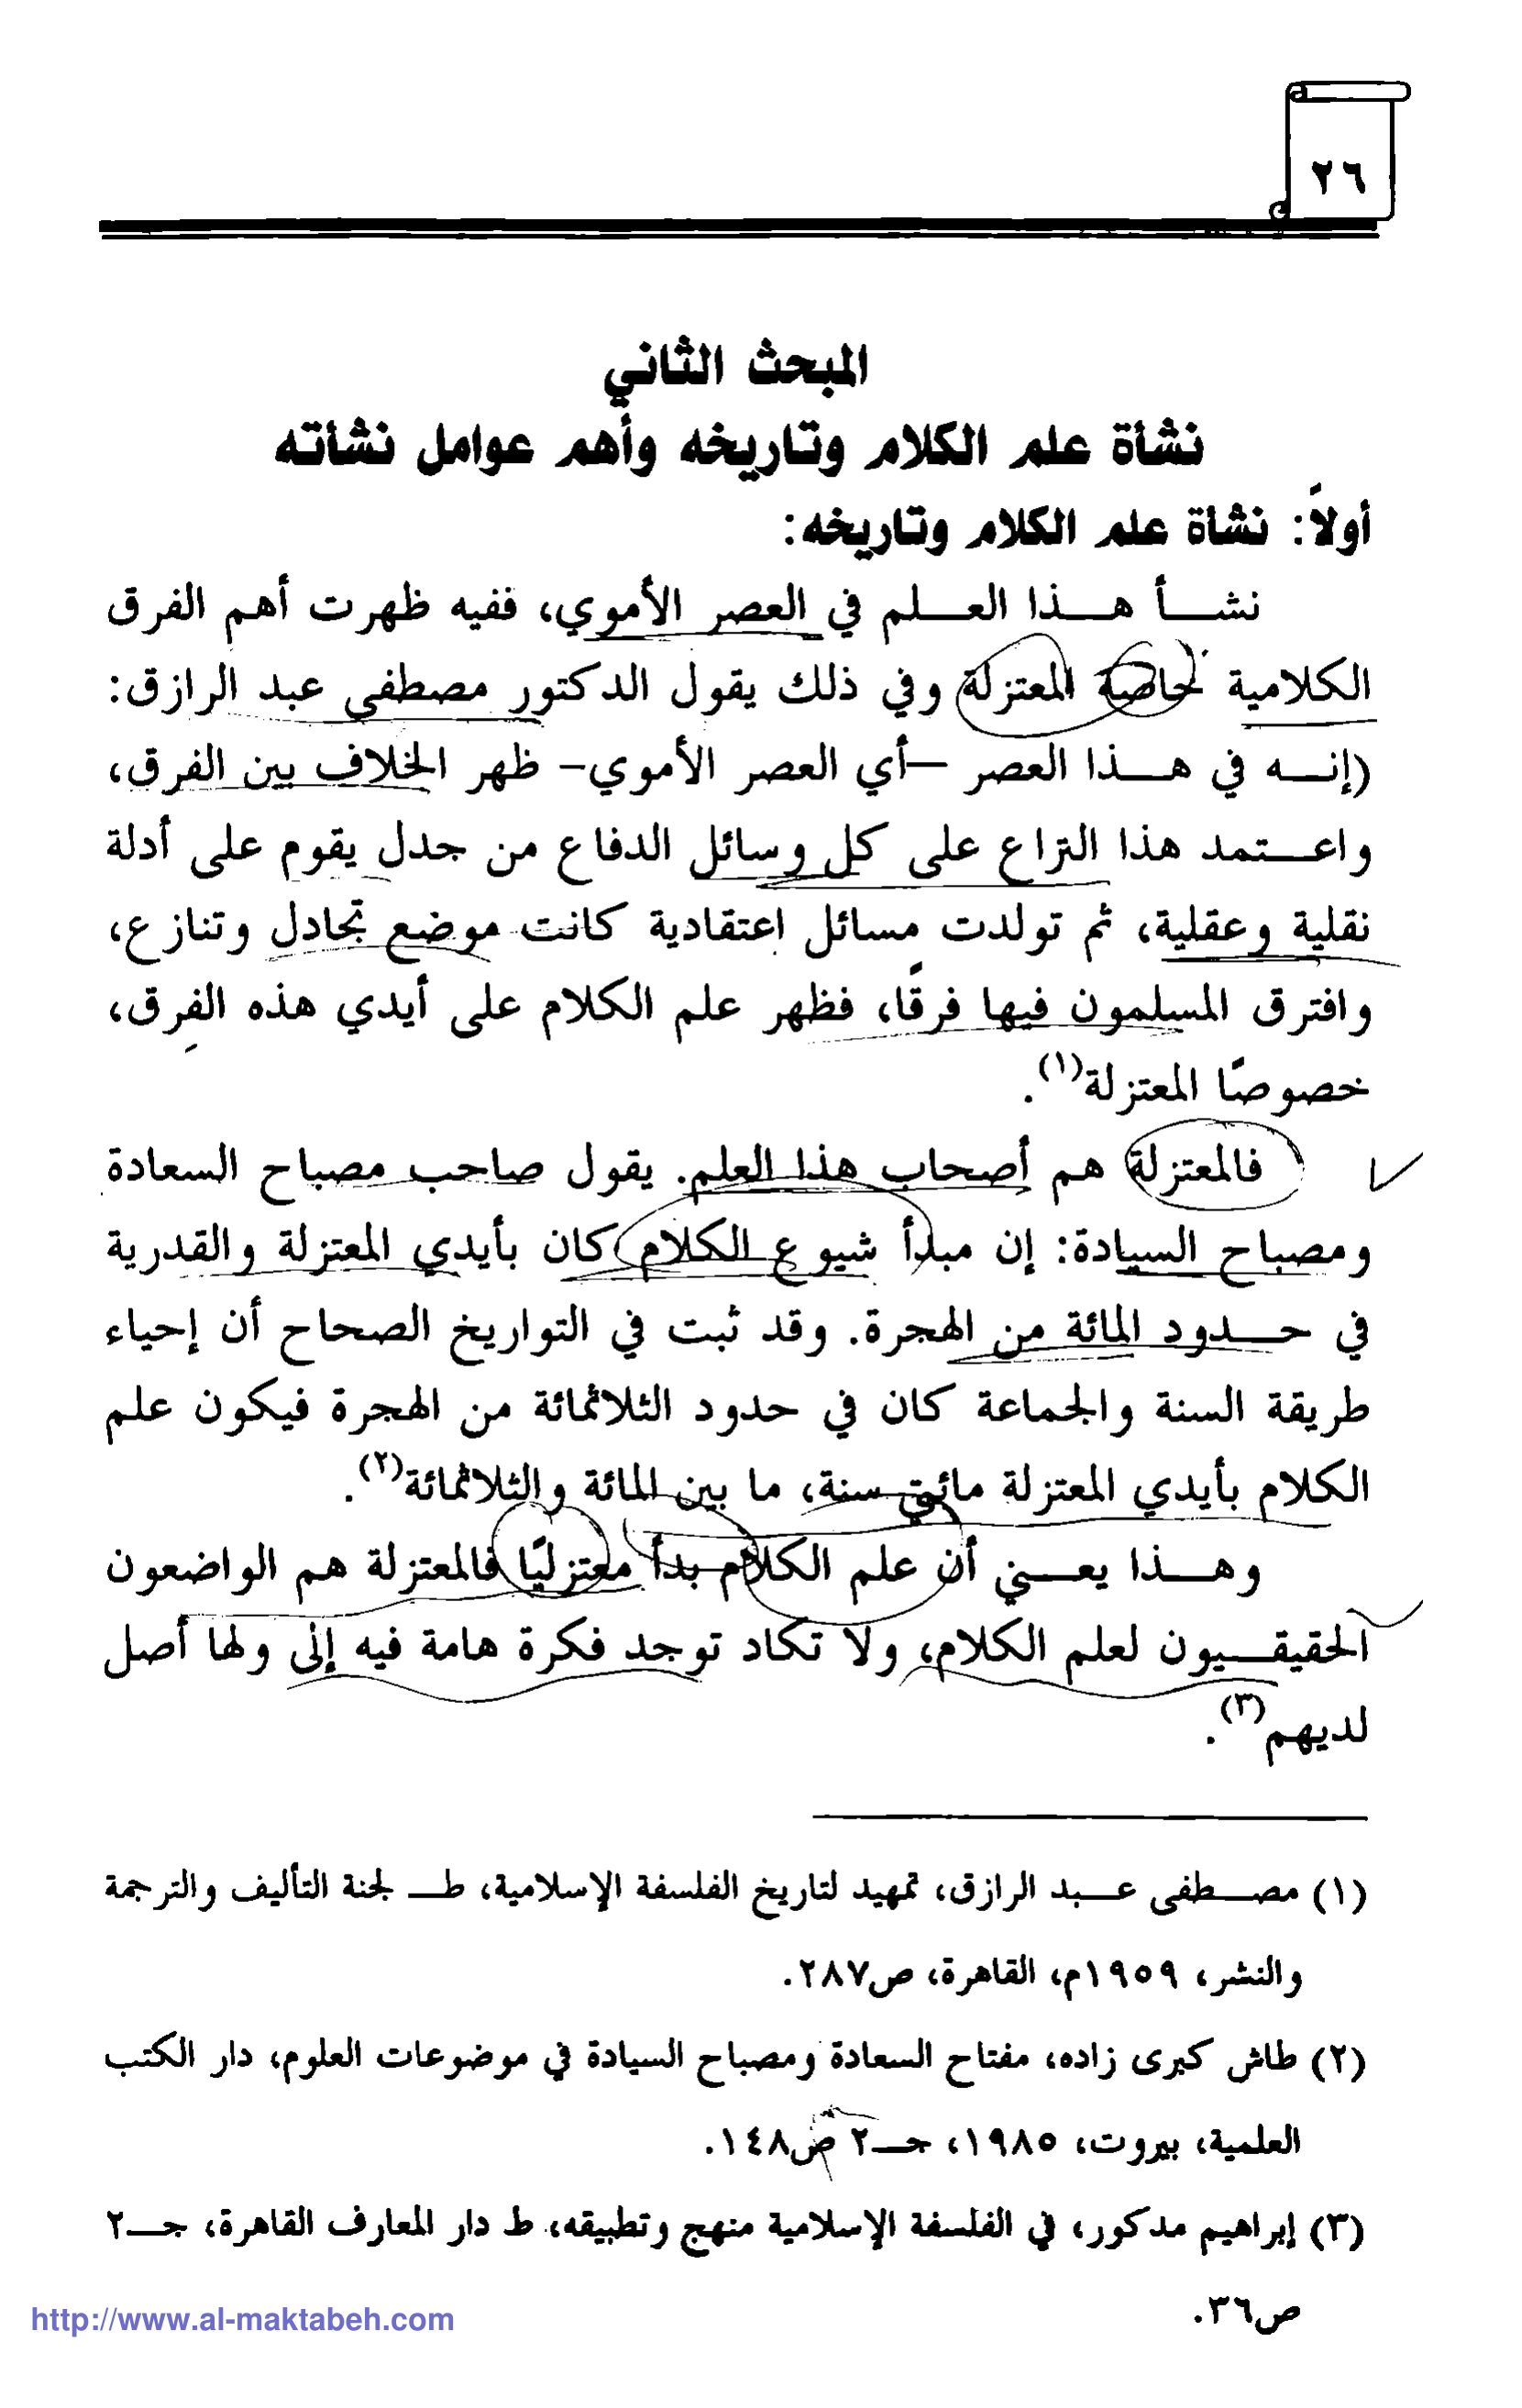 ٢٦
المبحث الثاني
نشأة علم الكلام وتاريخه وأهم عوامل نشأته
أولاً: نشاة علم الكلام وتاريخه:
نشأ هذا العلم في العصر الأموي، ففيه ظهرت أهم الفرق
الكلامية خاصة المعتزلة وفي ذلك يقول الدكتور مصطفى عبد الرازق:
(إنه في هذا العصر –أي العصر الأموي– ظهر الخلاف بين الفرق،
واعتمد هذا النزاع على كل وسائل الدفاع من جدل يقوم على أدلة
نقلية وعقلية، ثم تولدت مسائل اعتقادية كانت موضع تجادل وتنازع،
وافترق المسلمون فيها فرقًا، فظهر علم الكلام على أيدي هذه الفرق،
خصوصًا المعتزلة(١).
فالمعتزلة هم أصحاب هذا العلم. يقول صاحب مصباح السعادة
ومصباح السيادة: إن مبدأ شيوع الكلام كان بأيدي المعتزلة والقدرية
في حدود المائة من الهجرة. وقد ثبت في التواريخ الصحاح أن إحياء
طريقة السنة والجماعة كان في حدود الثلاثمائة من الهجرة فيكون علم
الكلام بأيدي المعتزلة مائتي سنة، ما بين المائة والثلاثمائة(٢).
وهذا يعني أن علم الكلام بدأ معتزليًا فالمعتزلة هم الواضعون
الحقيقيون لعلم الكلام، ولا تكاد توجد فكرة هامة فيه إلى ولها أصل
لديهم(٣).
(١) مصطفى عبد الرازق، تمهيد لتاريخ الفلسفة الإسلامية، ط لجنة التأليف والترجمة
والنشر، ١٩٥٩م، القاهرة، ص٢٨٧.
(٢) طاش كبرى زاده، مفتاح السعادة ومصباح السيادة في موضوعات العلوم، دار الكتب
العلمية، بيروت، ١٩٨٥، جـ٢ ص١٤٨.
(٣) إبراهيم مدكور، في الفلسفة الإسلامية منهج وتطبيقه، ط دار المعارف القاهرة، جـ٢
ص٣٦.
http://www.al-maktabeh.com